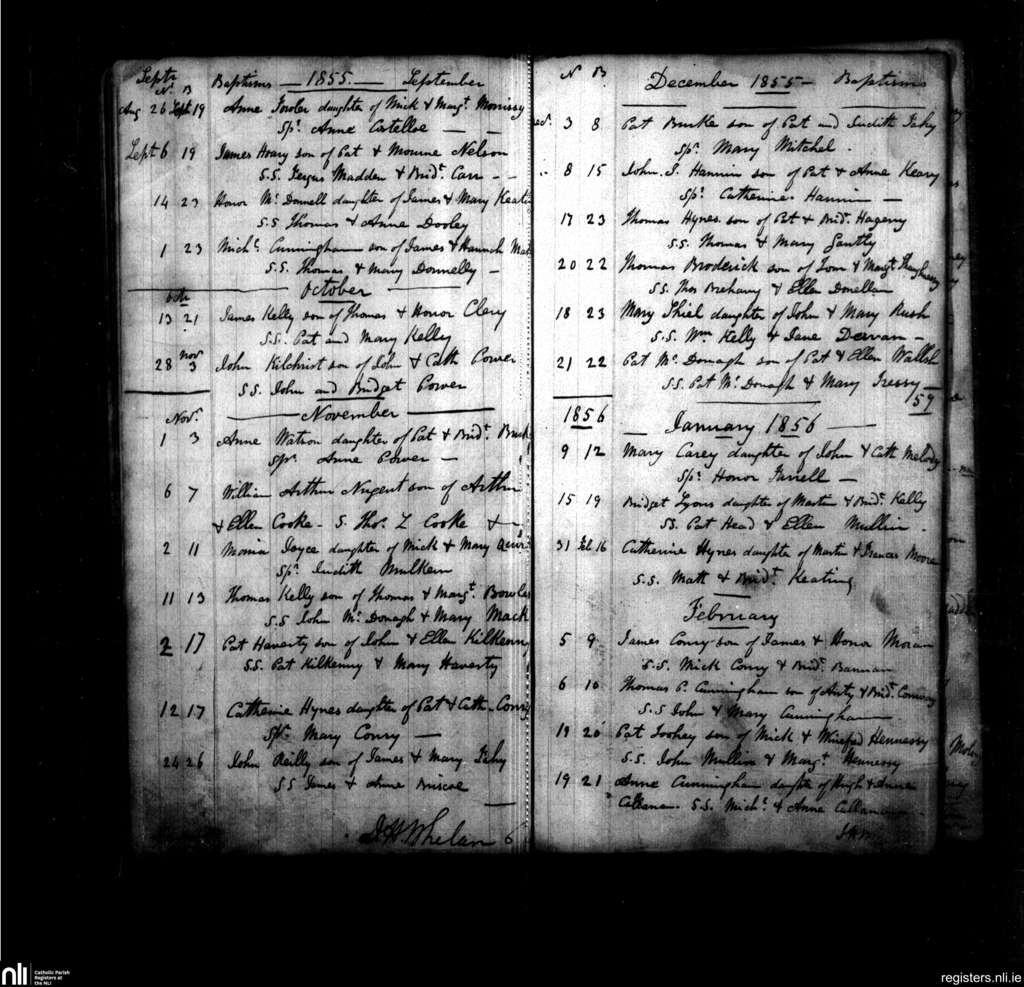 Septr
N. B Baptisms — 1855 — September
Aug 26 Sept 19 Anne Fowler daughter of Mick & Margt. Morrissy
Spr. Anne Costelloe — —
Sept 6 19 James Hoary son of Pat & Nelson
S.S. Fergus Madden & Bridt. Carr - -
14 23 Honor Mc. Donnell daughter of James & Mary
S.S Thomas & Anne Dooley
1 23 Michl. Cunningham son of James & Hannah
S.S. Thomas & Mary Donnelly —
October
Oct
13 21 James Kelly son of Thomas & Honor Clery
S.S. Pat and Mary Kelly
28 Novr 3 John Kilchrist son of John & Cath Power
S.S. John and Bridget Power
Novr. November
1 3 Anne Watson daughter of Pat & Bridt.
Spr. Anne Power —
6 7 William Arthur Nugent son of Arthur
& Ellen Cooke - S. Thos. L Cooke
2 11 Maria Joyce daughter of Mick & Mary
Spr. Judith Mulkern
11 13 Thomas Kelly son of Thomas & Margt. Bowles
S.S John Mc. Donagh & Mary Mack
2 17 Pat Haverty son of John & Ellen Kilkenny
S.S. Pat Kilkenny & Mary Haverty
12 17 Catherine Hynes daughter of Pat & Cath. Conry
Spr. Mary Conry —
24 26 John Reilly son of James & Mary Fahy
S S James & Anne Briscoe
Whelan
N B December 1855 — Baptisms
3 8 Pat Burke son of Pat and Judith Fahy
Spr. Mary Mitchel.
8 15 John. S. Hannin son of Pat & Anne Keary
Spr. Catherine Hannin —
17 23 Thomas Hynes son of Pat & Bridt. Hagerny
S.S. Thomas & Mary Gantly
20 22 Thomas Broderick son of Tom & Margt.
S.S. Thos Brehany & Ellen
18 23 Mary Shiel daughter of John & Mary Rush
S.S. Wm. Kelly & Jane Dervan —
21 22 Pat Mc. Donagh son of Pat & Ellen Wallsh
S.S. Pat Mc. Donagh & Mary Tressy —
159
1856 — January 1856 —
9 12 Mary Carey daughter of John & Cath Melody
Spr. Honor Farrell —
15 19 Bridget Lyons daughter of Martin & Bridt. Kelly
SS. Pat Head & Ellen Mullin.
31 Feb 16 Catherine Hynes daughter of Martin & Frances Moore
S.S. Matt & Bridt. Keating
February
5 9 James Conry son of James & Honor Moran
S.S. Mick Conry & Bridt. Bannan
6 10 Thomas P. Cunningham son of Anty & Bridt. Conway
S.S John & Mary Cunningham
19 20 Pat Toohey son of Mick & Winefred Hennessy
S.S. John Mullin & Margt. Hennessy
19 21 Anne Cunningham daughter of Hugh & Anne
Callanan. S.S. Michl. & Anne Callanan
nli Catholic Parish
Registers at
the NLI
registers.nli.ie